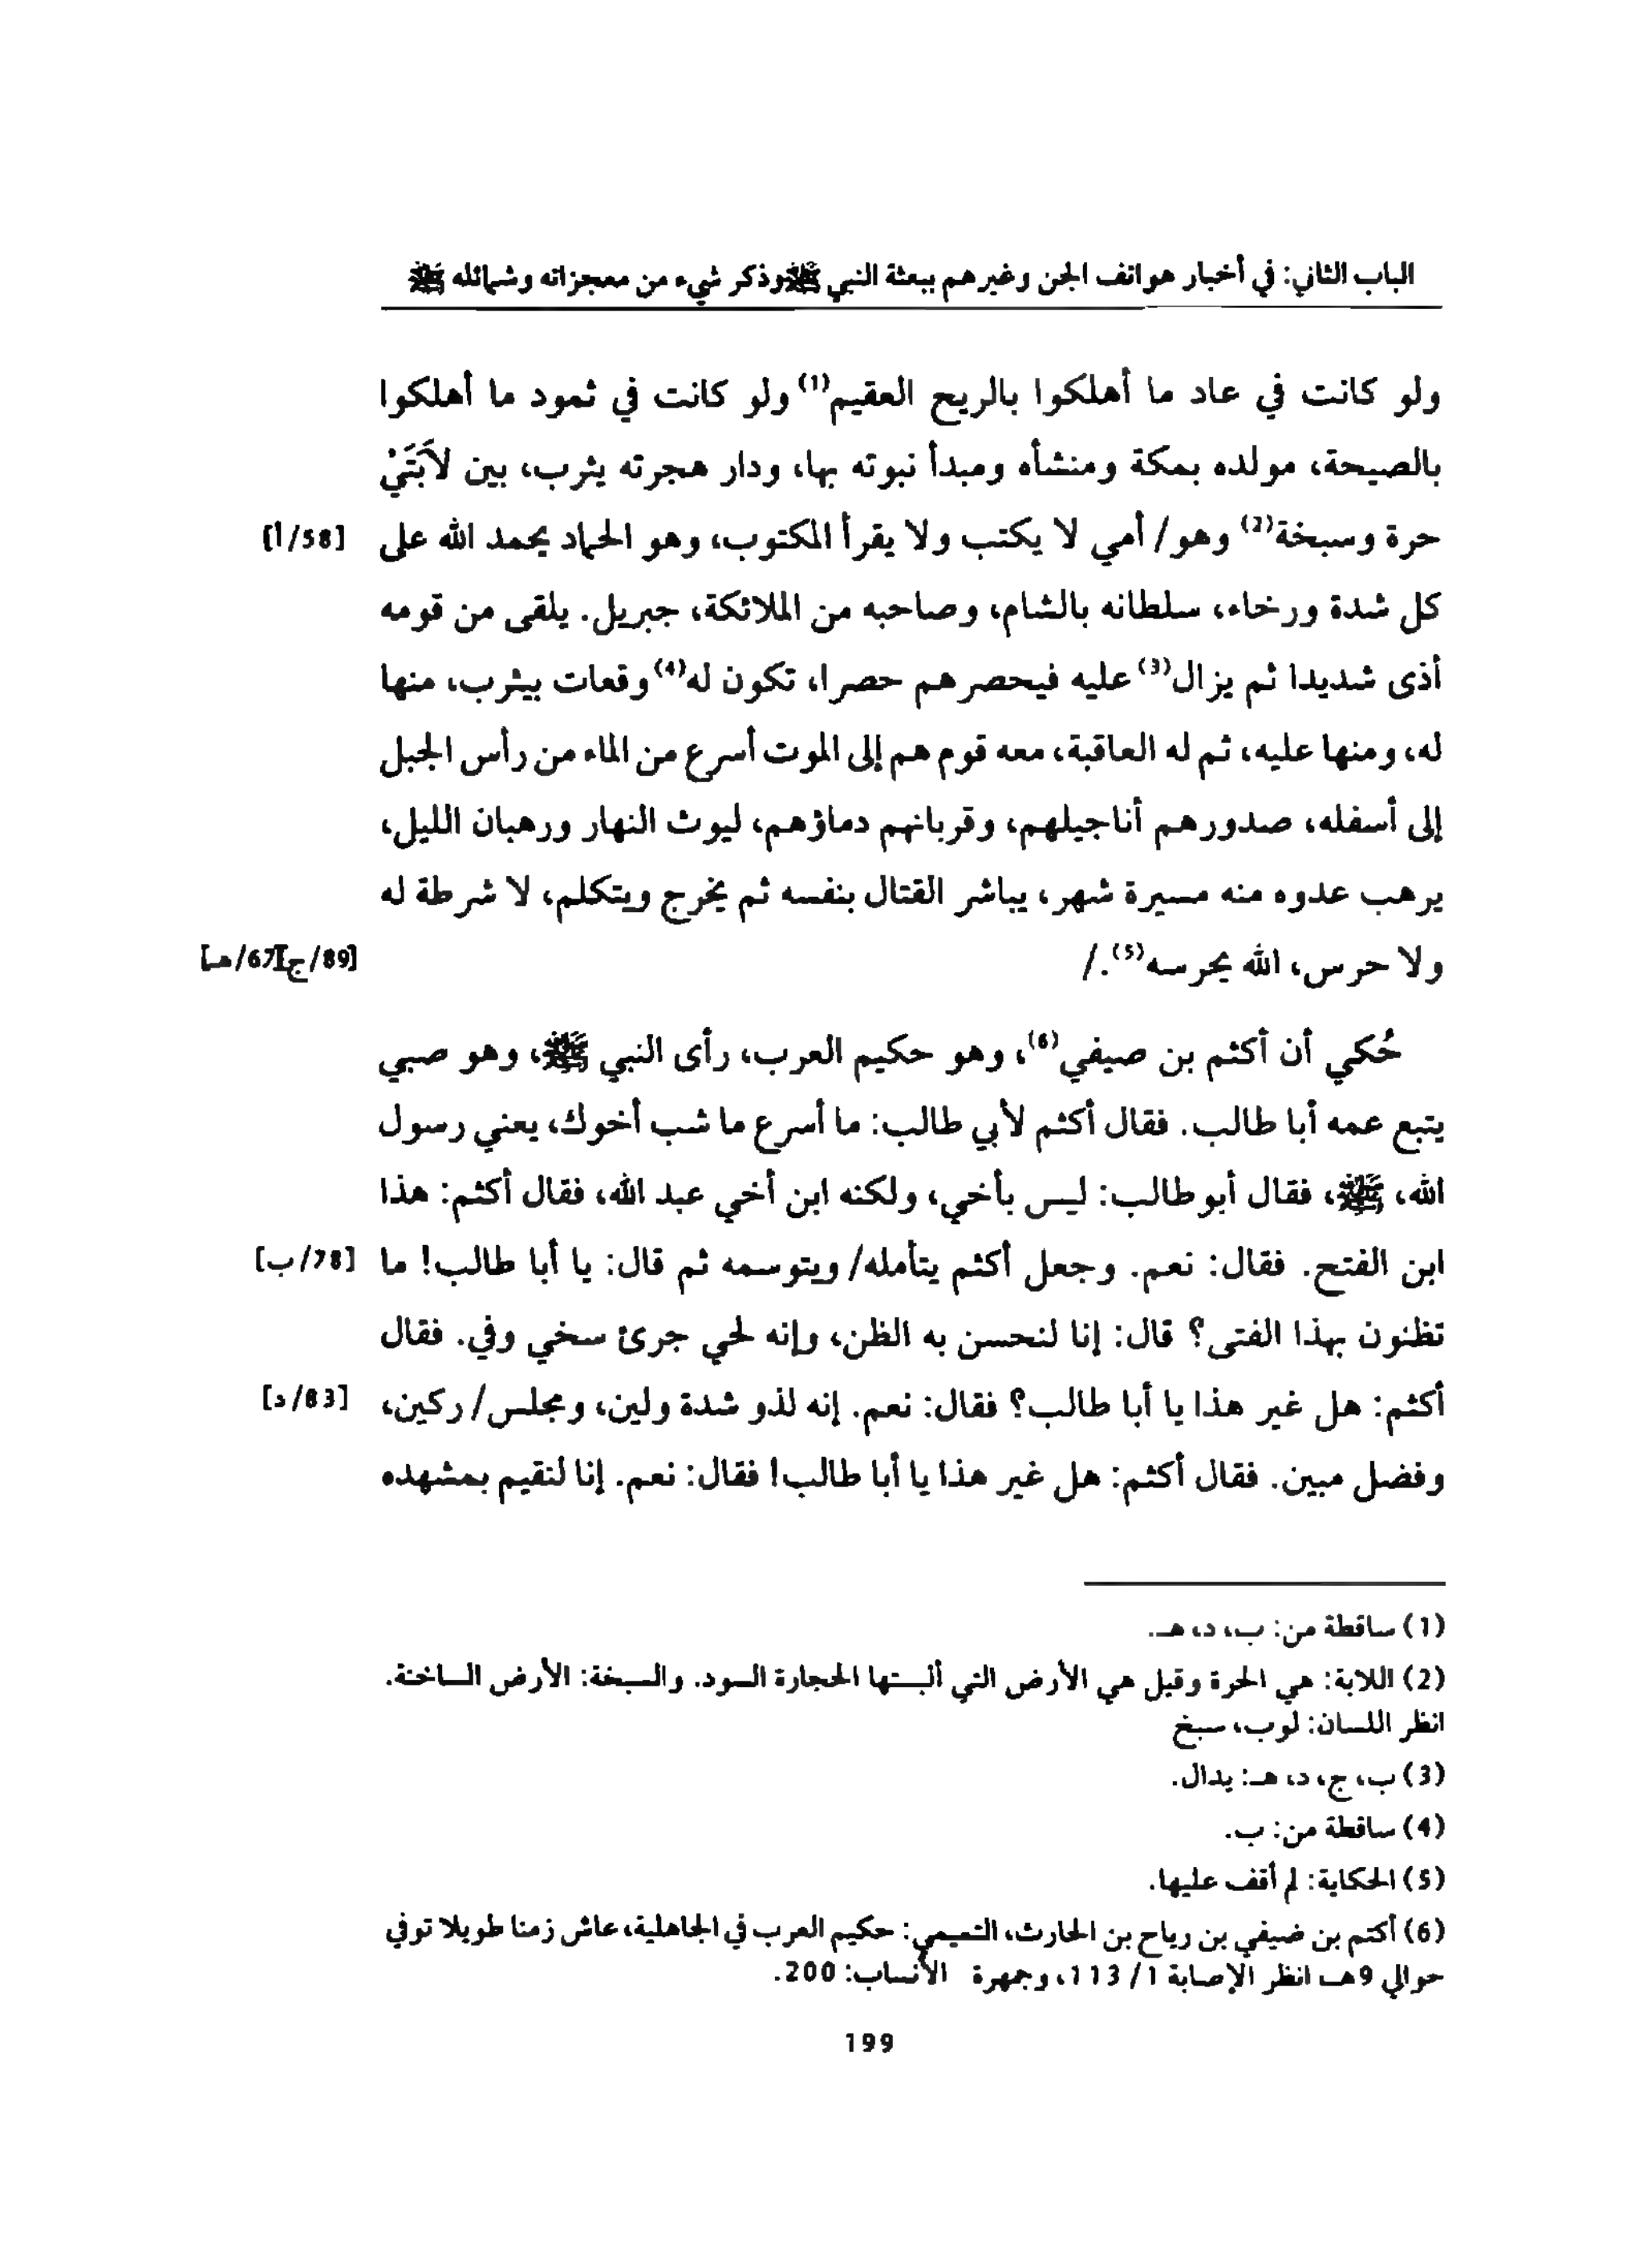 الباب الثاني: في أخبار هواتف الجن وغيرهم ببعثة النبي ﷺ وذكر شيء من معجزاته وشمائله ﷺ
ولو كانت في عاد ما أهلكوا بالريح العقيم(1) ولو كانت في ثمود ما أهلكوا
بالصيحة، مولده بمكة ومنشأه ومبدأ نبوته بها، ودار هجرته يثرب، بين لاَبَتَيْ
حرة وسبخة(2) وهو/ أمي لا يكتب ولا يقرأ المكتوب، وهو الحماد يحمد الله على [58/أ]
كل شدة ورخاء، سلطانه بالشام، وصاحبه من الملائكة، جبريل. يلقى من قومه
أذى شديدا ثم يزال(3) عليه فيحصرهم حصرا، تكون له(4) وقعات بيثرب، منها
له، ومنها عليه، ثم له العاقبة، معه قوم هم إلى الموت أسرع من الماء من رأس الجبل
إلى أسفله، صدورهم أناجيلهم، وقربانهم دماؤهم، ليوث النهار ورهبان الليل،
يرهب عدوه منه مسيرة شهر، يباشر القتال بنفسه ثم يخرج ويتكلم، لا شرطة له
ولا حرس، الله يحرسه(5)./ [89/ج][67/هـ]
حُكي أن أكثم بن صيفي(6)، وهو حكيم العرب، رأى النبي ﷺ، وهو صبي
يتبع عمه أبا طالب. فقال أكثم لأبي طالب: ما أسرع ما شب أخوك، يعني رسول
الله، ﷺ، فقال أبو طالب: ليس بأخي، ولكنه ابن أخي عبد الله، فقال أكثم: هذا
ابن الفتح. فقال: نعم. وجعل أكثم يتأمله/ ويتوسمه ثم قال: يا أبا طالب! ما [78/ب]
تظنون بهذا الفتى؟ قال: إنا لنحسن به الظن، وإنه لحي جرئ سخي وفي. فقال
أكثم: هل غير هذا يا أبا طالب؟ فقال: نعم. إنه لذو شدة ولين، ومجلس/ ركين، [83/د]
وفضل مبين. فقال أكثم: هل غير هذا يا أبا طالب! فقال: نعم. إنا لنقيم بمشهده
(1) ساقطة من: ب، د، هـ.
(2) اللابة: هي الحرة وقيل هي الأرض التي ألبستها الحجارة السود. والسبخة: الأرض الساخنة.
انظر اللسان: لوب، سبخ
(3) ب، ج، د، هـ: يدال.
(4) ساقطة من: ب.
(5) الحكاية: لم أقف عليها.
(6) أكتم بن ضيفي بن رياح بن الحارث، التميمي: حكيم العرب في الجاهلية، عاش زمنا طويلا توفي
حوالي 9هـ انظر الإصابة 1/ 113، وجمهرة الأنساب: 200.
199